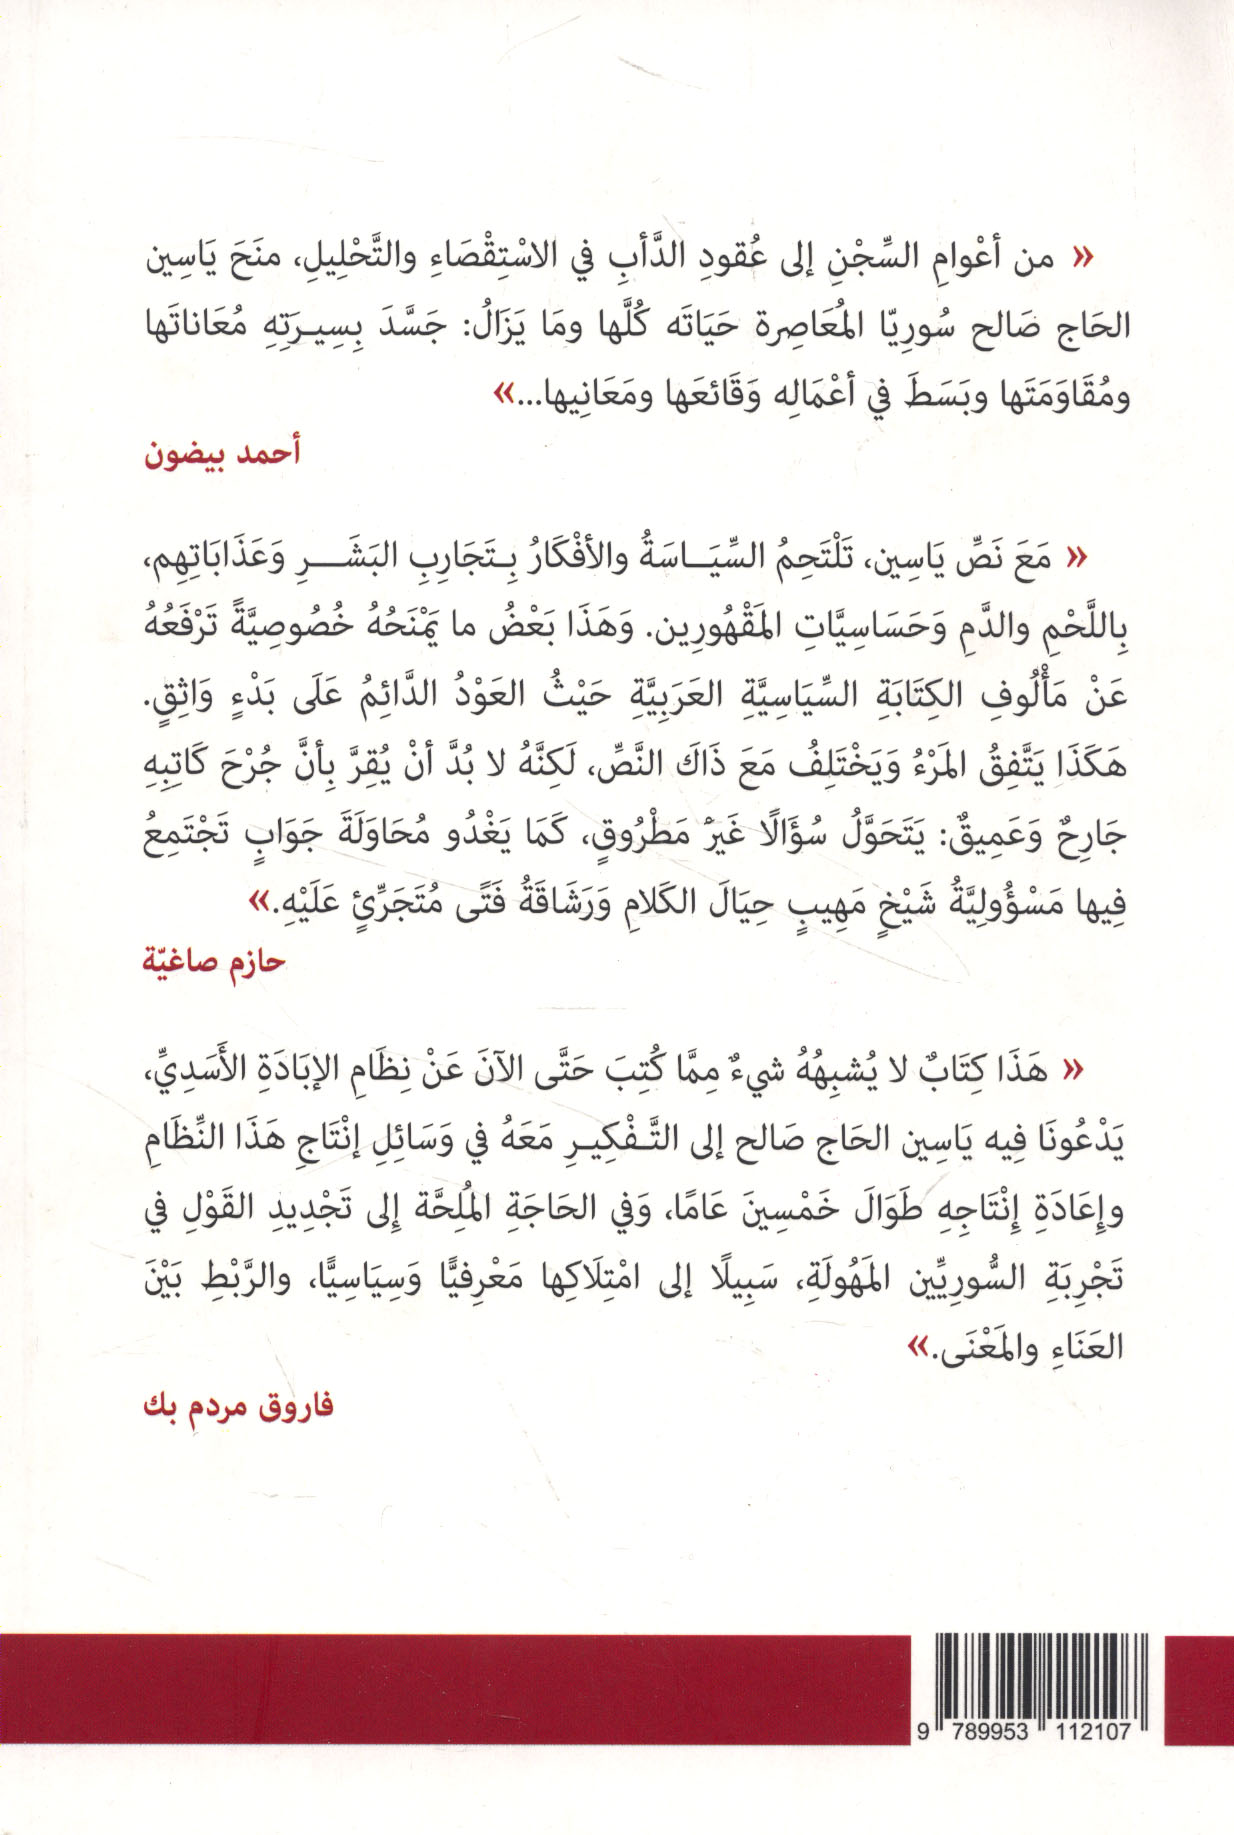 « من أعْوامِ السِّجْنِ إلى عُقودِ الدَّأبِ في الاسْتِقْصَاءِ والتَّحْلِيلِ، منَحَ يَاسِين
الحَاج صَالح سُورِيّا المُعَاصِرة حَيَاتَه كُلَّها ومَا يَزَالُ: جَسَّدَ بِسِيرَتِهِ مُعَاناتَها
ومُقَاوَمَتَها وبَسَطَ في أعْمَالِه وَقَائعَها ومَعَانِيها...»
أحمد بيضون
« مَعَ نَصِّ يَاسِين، تَلْتَحِمُ السِّيَـاسَةُ والأفْكَارُ بِـتَجَارِبِ البَشَـــرِ وَعَذَابَاتِهِم،
بِاللَّحْمِ والدَّمِ وَحَسَاسِيَّاتِ المَقْهُورِين. وَهَذَا بَعْضُ ما يَمْنَحُهُ خُصُوصِيَّةً تَرْفَعُهُ
عَنْ مَأْلُوفِ الكِتَابَةِ السِّيَاسِيَّةِ العَرَبِيَّةِ حَيْثُ العَوْدُ الدَّائِمُ عَلَى بَدْءٍ وَاثِقٍ.
هَكَذَا يَتَّفِقُ المَرْءُ وَيَخْتَلِفُ مَعَ ذَاكَ النَّصِّ، لَكِنَّهُ لا بُدَّ أنْ يُقِرَّ بِأنَّ جُرْحَ كَاتِبِهِ
جَارِحٌ وَعَمِيقٌ: يَتَحَوَّلُ سُؤَالًا غَيرَْ مَطْرُوقٍ، كَمَا يَغْدُو مُحَاوَلَةَ جَوَابٍ تَجْتَمِعُ
فِيها مَسْؤُولِيَّةُ شَيْخٍ مَهِيبٍ حِيَالَ الكَلامِ وَرَشَاقَةُ فَتًى مُتَجَرِّئٍ عَلَيْهِ.»
حازم صاغيّة
« هَذَا كِتَابٌ لا يُشبِهُهُ شيءٌ مِمَّا كُتِبَ حَتَّى الآنَ عَنْ نِظَامِ الإبَادَةِ الأَسَدِيِّ،
يَدْعُونَا فِيه يَاسِين الحَاج صَالح إلى التَّـفْكِيـرِ مَعَهُ في وَسَائِلِ إنْتَاجِ هَذَا النِّظَامِ
وإعَادَةِ إنْتَاجِهِ طَوَالَ خَمْسِينَ عَامًا، وَفي الحَاجَةِ المُلِحَّة إِلى تَجْدِيدِ القَوْلِ في
تَجْرِبَةِ السُّورِيِّين المَهُولَةِ، سَبِيلًا إلى امْتِلَاكِها مَعْرِفيًّا وَسِيَاسِيًّا، والرَّبْطِ بَيْنَ
العَنَاءِ والمَعْنَى.»
فاروق مردم بك
9 789953 112107